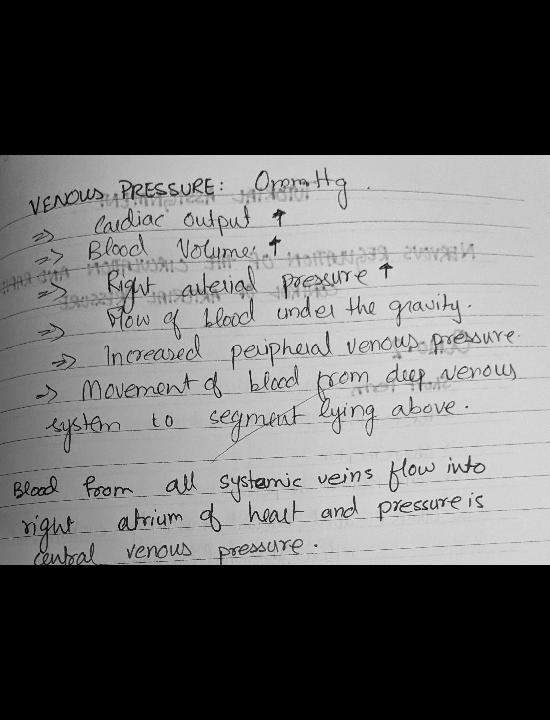 VENOUS PRESSURE: 0mmHg.
=> Cardiac output ↑
=> Blood Volume: ↑
=> Right aterial pressure ↑
=> Flow of blood under the gravity.
=> Increased peripheral venous pressure.
=> Movement of blood from deep venous
system to segment lying above.
Blood from all systemic veins flow into
right atrium of heart and pressure is
central venous pressure.